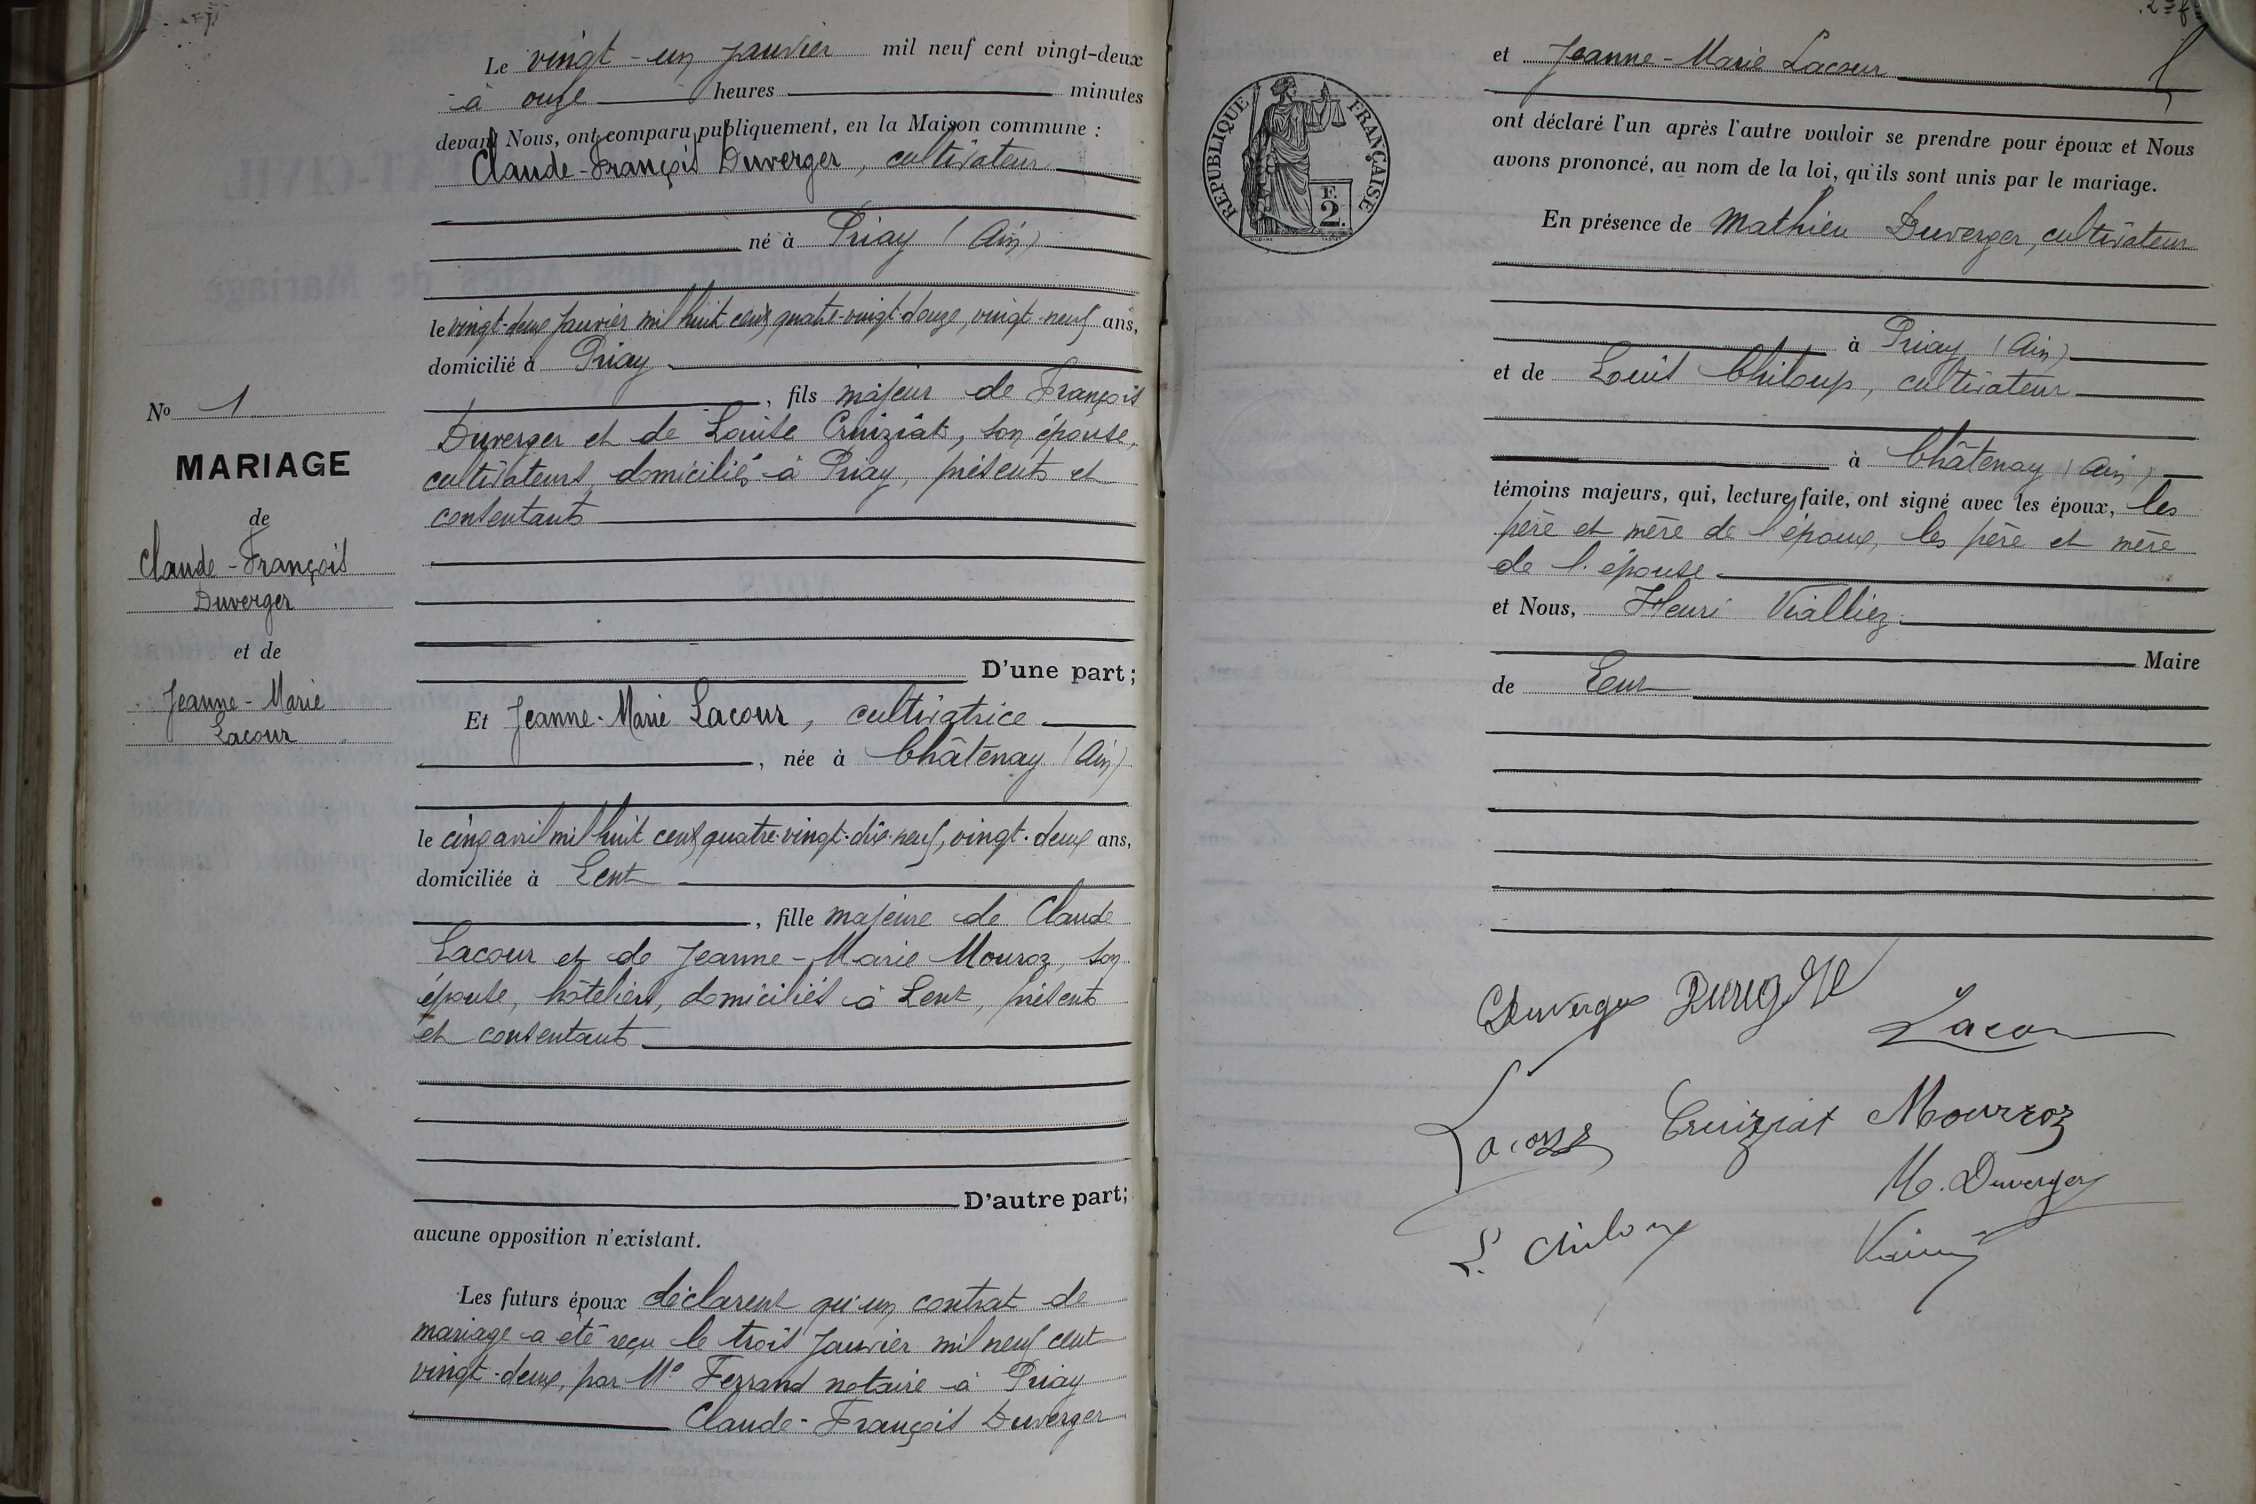 Le vingt-un janvier mil neuf cent vingt-deux
à onze heures minutes
devant Nous, ont comparu publiquement, en la Maison commune :
Claude-François Duverger, cultivateur
né à Priay (Ain)
le vingt-deux janvier mil huit cent quatre-vingt-douze, vingt-neuf ans,
domicilié à Priay
, fils majeur de François
Duverger et de Louise Cruiziat, son épouse,
cultivateurs, domiciliés à Priay, présents et
consentants
D'une part;
No 1
MARIAGE
de
Claude-François
Duverger
et de
Jeanne-Marie
Lacour
Et Jeanne-Marie Lacour, cultivatrice
, née à Châtenay (Ain)
le cinq avril mil huit cent quatre-vingt-dix-neuf, vingt-deux ans,
domiciliée à Lent
, fille majeure de Claude
Lacour et de Jeanne-Marie Mouroz, son
épouse, hôteliers, domiciliés à Lent, présents
et consentants
D'autre part;
aucune opposition n'existant.
Les futurs époux déclarent qu'un contrat de
mariage a été reçu le trois janvier mil neuf cent
vingt-deux, par Me Ferrand notaire à Priay
Claude-François Duverger
et Jeanne-Marie Lacour
REPUBLIQUE FRANÇAISE
F.
2
ont déclaré l'un après l'autre vouloir se prendre pour époux et Nous
avons prononcé, au nom de la loi, qu'ils sont unis par le mariage.
En présence de Mathieu Duverger, cultivateur
à Priay (Ain)
et de Louis Chiloup, cultivateur
à Châtenay (Ain)
témoins majeurs, qui, lecture faite, ont signé avec les époux, les
père et mère de l'époux, les père et mère
de l'épouse
et Nous, Henri Vialliez
Maire
de Lent
Duverger
Lacour
Lacour Cruiziat Mourroz
M. Duverger
L. Chiloup